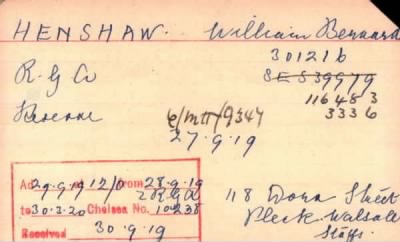 HENSHAW. William Bernard
301216
R.G.A
SES39979
116483
3336
Reserve
6/MH/9347
27.9.19
Ad 27.9.19 12/0 from 28.9.19
2 R.G.A
to 30.3.20 Chelsea No.
Received 30.9.19
118 Dora Street
Pleck. Walsall
Staffs.